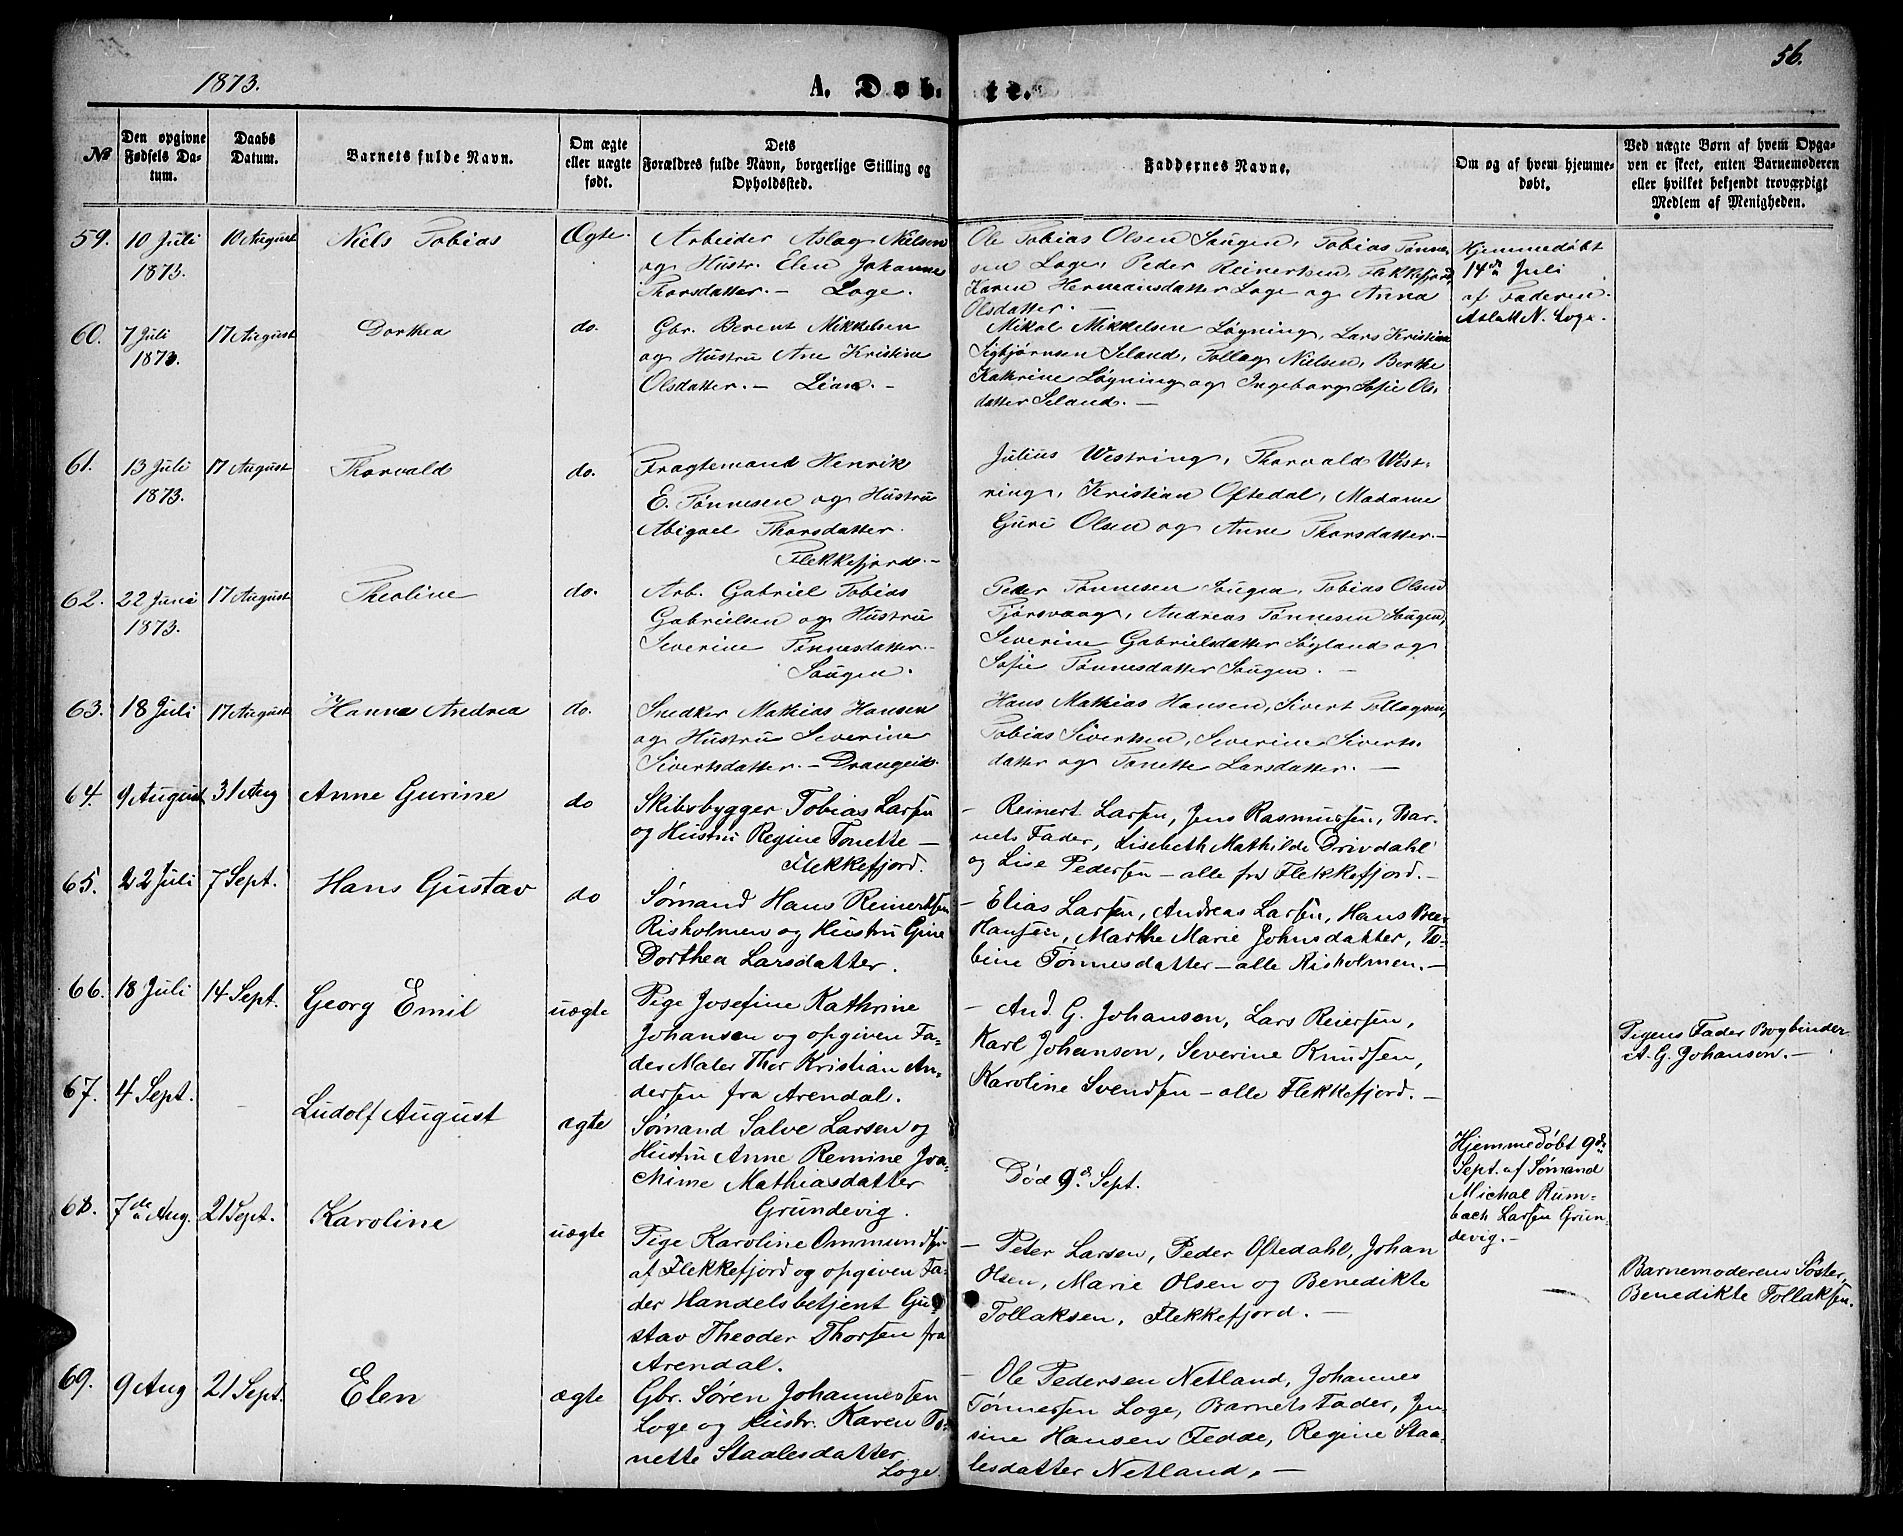 1873.
A. Døbte.
56.
№
Den opgivne Fødsels Datum.
Daabs Datum.
Barnets fulde Navn.
Om ægte eller uægte født.
Dets Forældres fulde Navn, borgerlige Stilling og Opholdssted.
Faddernes Navne.
Om og af hvem hjemmedøbt.
Ved uægte Børn af hvem Opgaven er skeet, enten Barnemoderen eller hvilket bekjendt troværdigt Medlem af Menigheden.
59. 10 Juli 1873. 10 August Niels Tobias Ægte.
Arbeider Aslag Nielsen
og Hustr. Elen Johanne
Thorsdatter. — Loge.
Ole Tobias Olsen Sougen, Tobias Tønne-
sen Loge, Peder Reinertsen, Flekkefjord,
Karen Hermansdatter Loge og Anna
Olsdatter. —
Hjemmedøbt
14de Juli
af Faderen
Aslak N. Loge.
60. 7 Juli 1873. 17 August Dorthea do.
Gbr. Berent Mikkelsen
og Hustru Ane Kristine
Olsdatter. — Lian. —
Mikal Mikkelsen Løgning, Lars Kristian
Sigbjørnsen Seland, Tollag Nielsen, Berthe
Kathrine Løgning og Ingeborg Sofie Ols-
datter Seland. —
61. 13 Juli 1873. 17 August Thorvald do.
Fragtemand Henrik
E. Tønnesen og Hustru
Abigael Thorsdatter.
Flekkefjord. —
Julius Westring, Thorvald West-
ring, Kristian Oftedal, Madame
Guri Olsen og Anne Thorsdatter. —
62. 22 Juni 1873. 17 August Theoline do.
Arb. Gabriel Tobias
Gabrielsen og Hustru
Severine Tønnesdatter. —
Sougen.
Peder Tønnesen Sougen, Tobias Olsen
Tjørsvaag, Andreas Tønnesen Sougen,
Severine Gabrielsdatter Søyland og
Sofie Tønnesdatter Sougen. —
63. 18 Juli 17 August Hanne Andrea do.
Snedker Mathias Hansen
og Hustru Severine
Sivertsdatter. — Drangeid.
Hans Mathias Hansen, Sivert Tollagsen,
Tobias Sivertsen, Severine Siverts-
datter og Tonette Larsdatter. —
64. 9 August 31 Aug Anne Gurine do
Skibsbygger Tobias Larsen
og Hustru Regine Tonette —
Flekkefjord.
— Reinert Larsen, Jens Rasmussen, Bar-
nets Fader, Lisebeth Mathilde Drivdahl
og Lise Pedersen — alle fra Flekkefjord. —
65. 22 Juli 7 Sept. Hans Gustav do
Sømand Hans Reinertsen
Risholmen og Hustru Gine
Dorthea Larsdatter.
— Elias Larsen, Andreas Larsen, Hans Beer
Hansen, Marthe Marie Johnsdatter, To-
bine Tønnesdatter — alle Risholmen. —
66. 18 Juli 14 Sept. Georg Emil uægte
Pige Josefine Kathrine
Johansen og opgiven Fa-
der Maler Thor Kristian An-
dersen fra Arendal.
— And. G. Johansen, Lars Reiersen,
Karl Johanson, Severine Knudsen,
Karoline Svendsen — alle Flekkefjord. —
Pigens Fader Bogbinder
A. G. Johanson. —
67. 4 Sept. — Ludolf August ægte
Sømand Salve Larsen og
Hustru Anne Remine Joa-
chime Mathiasdatter
Grundevig.
Død 9de Sept.
Hjemmedøbt 9de
Sept. af Sømand
Michal Rum-
bach Larsen Grun-
devig. —
68. 7de Aug. 21 Sept. Karoline uægte
Pige Karoline Ommundsen
af Flekkefjord og opgiven Fa-
der Handelsbetjent Gu-
stav Theoder Thorsen fra
Arendal.
— Peter Larsen, Peder Oftedahl, Johan
Olsen, Marie Olsen og Benedikte
Tollaksen, Flekkefjord. —
Barnemoderens Søster,
Benedikte Tollaksen.
69. 9 Aug 21 Sept. Elen ægte
Gbr. Søren Johannessen
Loge og Hustr. Karen To-
nette Staalesdatter
Loge
— Ole Pedersen Netland, Johannes
Tønnessen Loge, Barnets Fader, Jen-
sine Hansen Fedde, Regine Staa-
lesdatter Netland. —